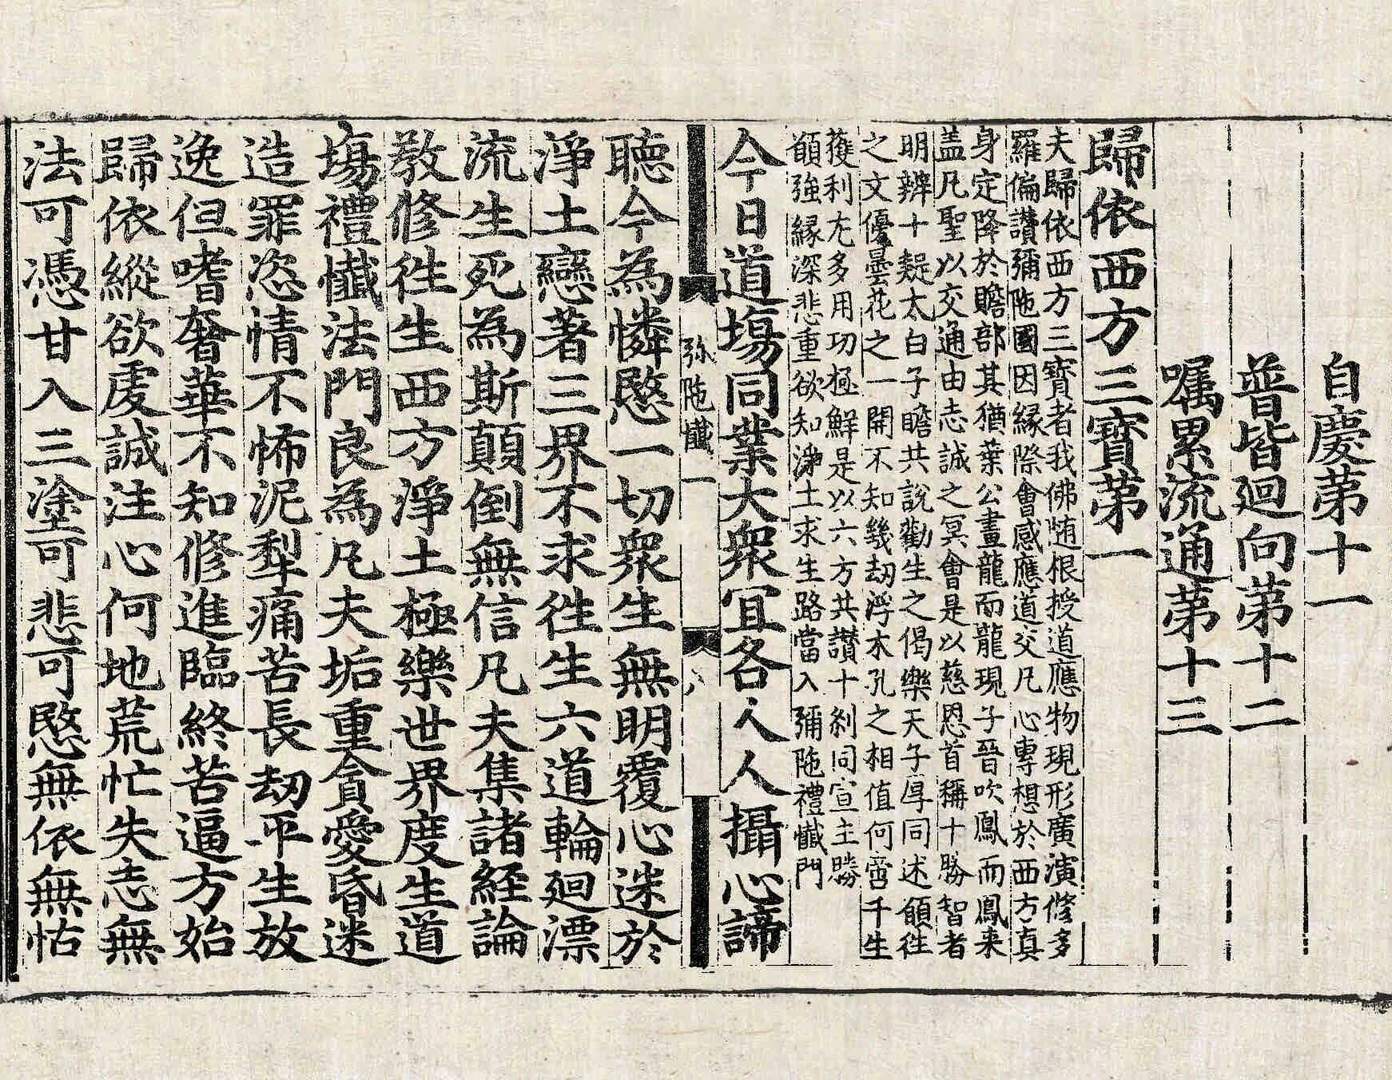 自慶第十一
普皆廻向第十二
嘱累流通第十三
歸依西方三寶第一
夫歸依西方三寶者我佛隨根授道應物現形廣演修多
羅偏讃彌陁國因縁際會感應道交凡心專想於西方真
身定降於贍部其猶葉公畫龍而龍現子晉吹鳳而鳳来
盖凡聖以交通由志誠之冥會是以慈恩首稱十勝智者
明辨十疑太白子瞻共說勸生之偈樂天子厚同述願徃
之文優曇花之一開不知幾劫浮木孔之相值何啻千生
獲利尤多用功極鮮是以六方共讃十刹同宣主勝
願強縁深悲重欲知淨土求生路當入彌陁禮懴門
今日道場同業大衆冝各人人攝心諦
弥陁懴一
八
聴今為憐愍一切衆生無明覆心迷於
淨土戀著三界不求徃生六道輪廻漂
流生死為斯顛倒無信凡夫集諸経論
教修徃生西方淨土極樂世界度生道
塲禮懴法門良為凡夫垢重貪愛昏迷
造罪恣情不怖泥犁痛苦長劫平生放
逸但嗜奢華不知修進臨終苦逼方始
歸依縱欲虔誠注心何地荒忙失志無
法可憑甘入三塗可悲可愍無依無怙